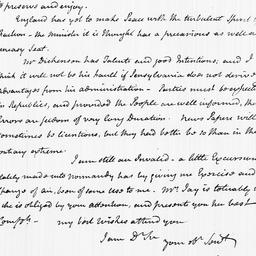 to preserve and enjoy.
England has yet to make Peace with the turbulent Spirit of
Faction — the Minister it is thought has a precarious as well as
uneasy Seat.
Mr Dickenson has Talents and good Intentions; and I
think it will not be his fault if Pensylvania does not derive
advantages from his administration — Parties must be expected
in Republics, and provided the People are well informed, their
Errors are seldom of very long Duration. News Papers will
sometimes be licentious, but they had better be so than in the
contrary extreme.
I am still an Invalid — a little Excursion
lately made into Normandy has by giving me Exercise and
Change of air, been of some use to me. Mrs Jay is tolerably well
she is obliged by your attention, and presents you her best
Complts. my best wishes attend you
I am Dr Sir your obt. Servt